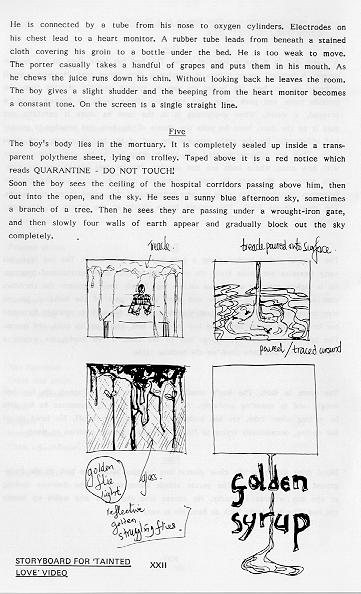 He is connected by a tube from his nose to oxygen cylinders. Electrodes on
his chest lead to a heart monitor. A rubber tube leads from beneath a stained
cloth covering his groin to a bottle under the bed. He is too weak to move.
The porter casually takes a handful of grapes and puts them in his mouth. As
he chews the juice runs down his chin. Without looking back he leaves the room.
The boy gives a slight shudder and the beeping from the heart monitor becomes
a constant tone. On the screen is a single straight line.
Five
The boy's body lies in the mortuary. It is completely sealed up inside a trans-
parent polythene sheet, lying on trolley. Taped above it is a red notice which
reads QUARANTINE - DO NOT TOUCH!
Soon the boy sees the ceiling of the hospital corridors passing above him, then
out into the open, and the sky. He sees a sunny blue afternoon sky, sometimes
a branch of a tree. Then he sees they are passing under a wrought-iron gate,
and then slowly four walls of earth appear and gradually block out the sky
completely.
treacle.
treacle poured onto surface.
poured/traced around
golden
flie
light
glass.
reflective
golden
struggling flies.
golden
syrup
STORYBOARD FOR 'TAINTED
LOVE' VIDEO
XXII